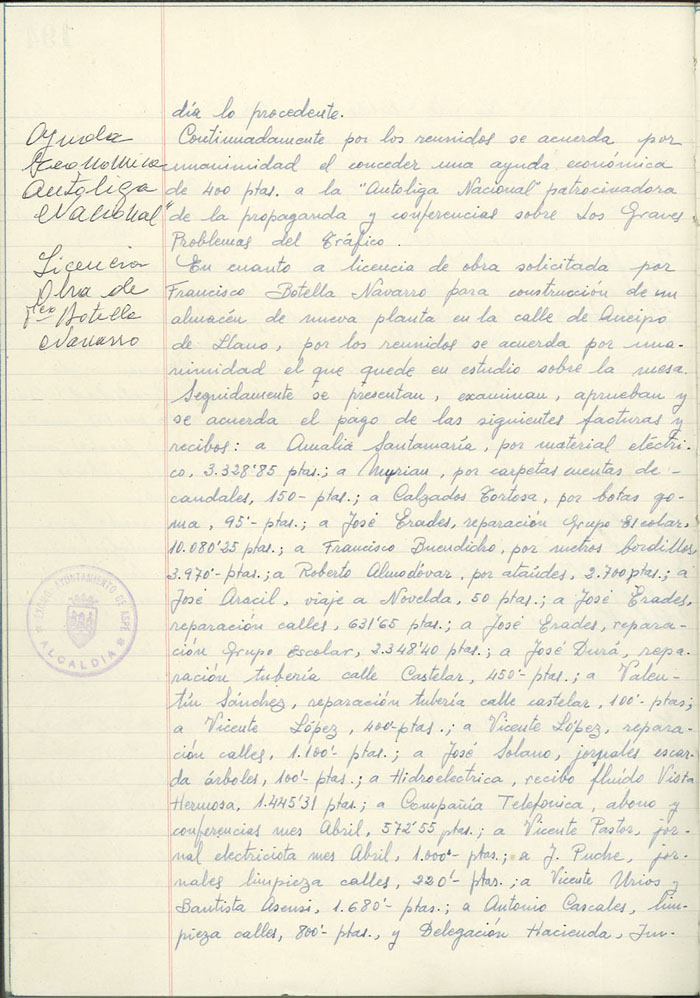 día lo procedente.
Ayuda
Económica
Autoliga
Nacional"
Continuadamente por los reunidos se acuerda por
unanimidad el conceder una ayuda económica
de 400 ptas. a la "Autoliga Nacional" patrocinadora
de la propaganda y conferencias sobre Los Graves
Problemas del Tráfico.
Licencia
Obra de
Fco Botella
Navarro
En cuanto a licencia de obra solicitada por
Francisco Botella Navarro para construcción de un
almacén de nueva planta en la calle de Queipo
de Llano, por los reunidos se acuerda por una-
nimidad el que quede en estudio sobre la mesa.
Seguidamente se presentan, examinan, aprueban y
se acuerda el pago de las siguientes facturas y
recibos: a Amalia Santamaría, por material eléctri-
co, 3.328'85 ptas.; a Myrian, por carpetas cuentas de-
caudales, 150- ptas.; a Calzados Tortosa, por botas go-
ma, 95'- ptas.; a José Erades, reparación Grupo Escolar,
10.080'25 ptas.; a Francisco Buendicho, por metros bordillos
3.970'- ptas.; a Roberto Almodóvar, por ataúdes, 2.700 ptas.; a
José Aracil, viaje a Novelda, 50 ptas.; a José Erades,
reparación calles, 631'65 ptas.; a José Erades, repara-
ción Grupo Escolar, 2.348'40 ptas.; a José Durá, repa-
ración tubería calle Castelar, 450'- ptas.; a Valen-
tín Sánchez, reparación tubería calle castelar, 100'- ptas;
a Vicente López, 400- ptas.; a Vicente López, repara-
ción calles, 1.100'- ptas.; a José Solano, jornales escar-
da árboles, 100'- ptas.; a Hidroelectrica, recibo fluído Vista
Hermosa, 1.445'31 ptas.; a Compañía Telefonica, abono y
conferencias mes Abril, 572'55 ptas.; a Vicente Pastor, jor-
nal electricista mes Abril, 1.000'- ptas.; a J. Puche, jor-
nales limpieza calles, 220'- ptas.; a Vicente Urios y
Bautista Asensi, 1.680'- ptas.; a Antonio Cascales, lim-
pieza calles, 800'- ptas., y Delegación Hacienda, Im-
AYUNTAMIENTO DE ASPE
ALCALDIA